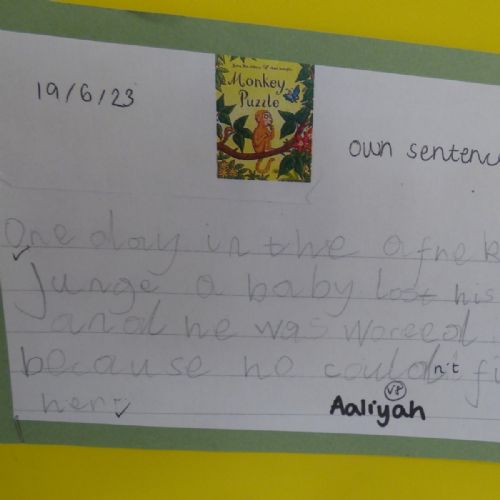 19/6/23
Monkey
Puzzle
own sentenc
One day in the
junge a baby lost his
and he was woreed
because he couldn't fi
her.
VF
Aaliyah